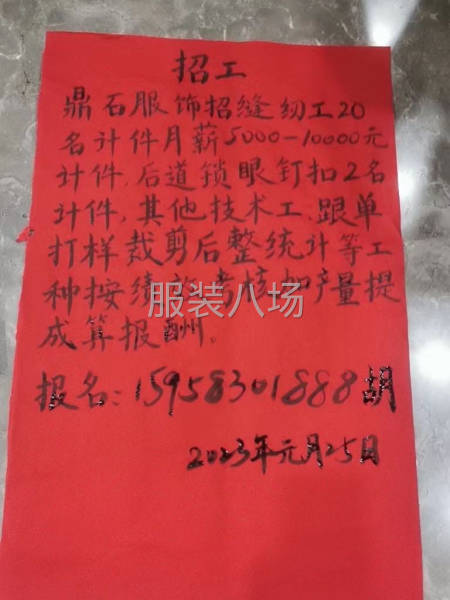 招工
鼎石服饰招缝纫工20
名计件月薪5000-10000元
计件,后道锁眼钉扣2名
计件,其他技术工,跟单
打样裁剪后整统计等工
种按绩效考核加产量提
成算报酬。
报名:15958301888胡
2023年元月25日
服装八场